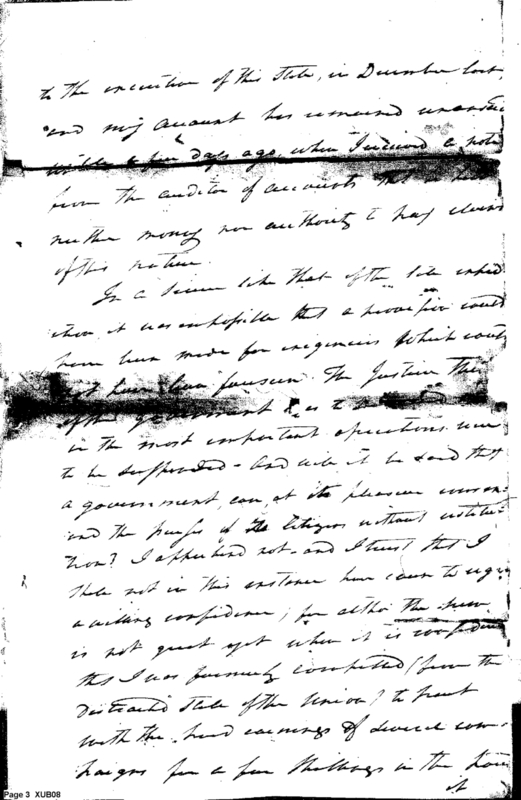 to the execution of this State, in December last,
and my account has remained unanswe
until a few days ago, when I received a note
from the auditor of accounts that he had
neither money nor authority to pay claims
of this nature.
In a service like that of the late exped
ition it was impossible that a provision could
have been made for exigencies which could
not have been foreseen. The Justice then
of the government is, as to
in the most important operations were
to be suspended - And will it be said that
a government, can, at its pleasure
and the purses of its Citizens without restitu
tion? I apprehend not - and I trust that I
shall not in this instance have cause to regret
a willing confidence; for altho the sum
is not great yet when it is considered
that I was formerly compelled (from the
distracted state of the Union) to part
with the hard earnings of several cam-
paigns for a few shillings in the pound
it
Page 3 XUB08